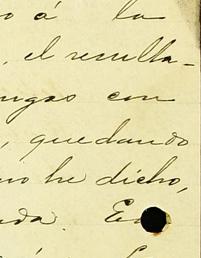 o á la
, el resulta-
ngas con
, quedando
mo he dicho,
nda. En